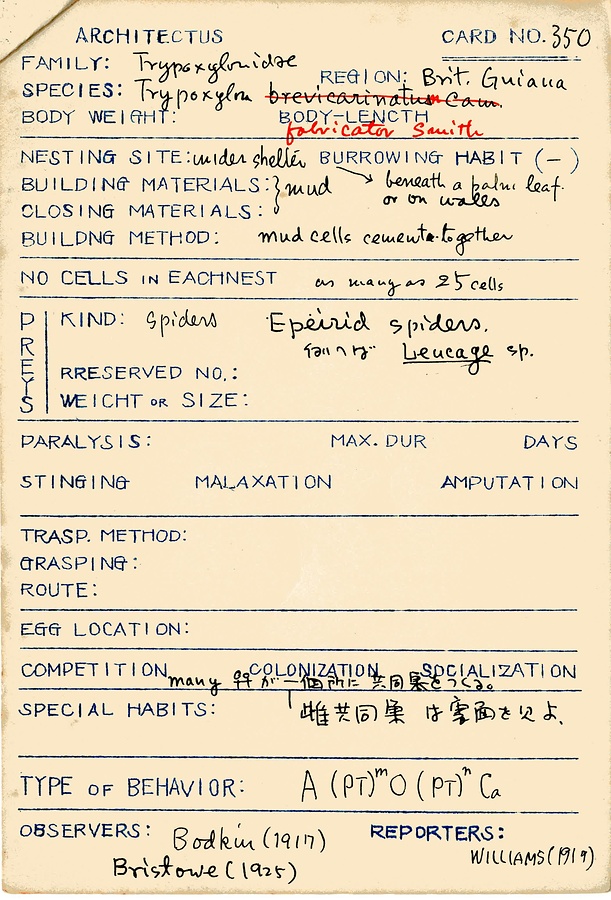 ARCHITECTUS CARD NO. 350
FAMILY: Trypoxylonidae
REGION: Brit. Guiana
SPECIES: Trypoxylon brevicarinatum Cam.
BODY WEIGHT: BODY-LENGTH
fabricator Smith
NESTING SITE: under shelter BURROWING HABIT (-)
BUILDING MATERIALS: } mud → beneath a palm leaf
or on walls
CLOSING MATERIALS:
BUILDNG METHOD: mud cells cemented together
NO CELLS IN EACHNEST as many as 25 cells
PREYS KIND: Spiders Epeirid spiders.
Leucage sp.
RRESERVED NO.:
WEIGHT OR SIZE:
PARALYSIS: MAX. DUR DAYS
STINGING MALAXATION AMPUTATION
TRASP. METHOD:
GRASPING:
ROUTE:
EGG LOCATION:
COMPETITION COLONIZATION SOCIALIZATION
many ♀♀が一個所に共同巣をつくる。
SPECIAL HABITS: 雌共同巣は
TYPE OF BEHAVIOR: A (PT)ᵐO (PT)ⁿ Ca
OBSERVERS: Bodkin (1917) REPORTERS:
WILLIAMS (1919)
Bristowe (1925)